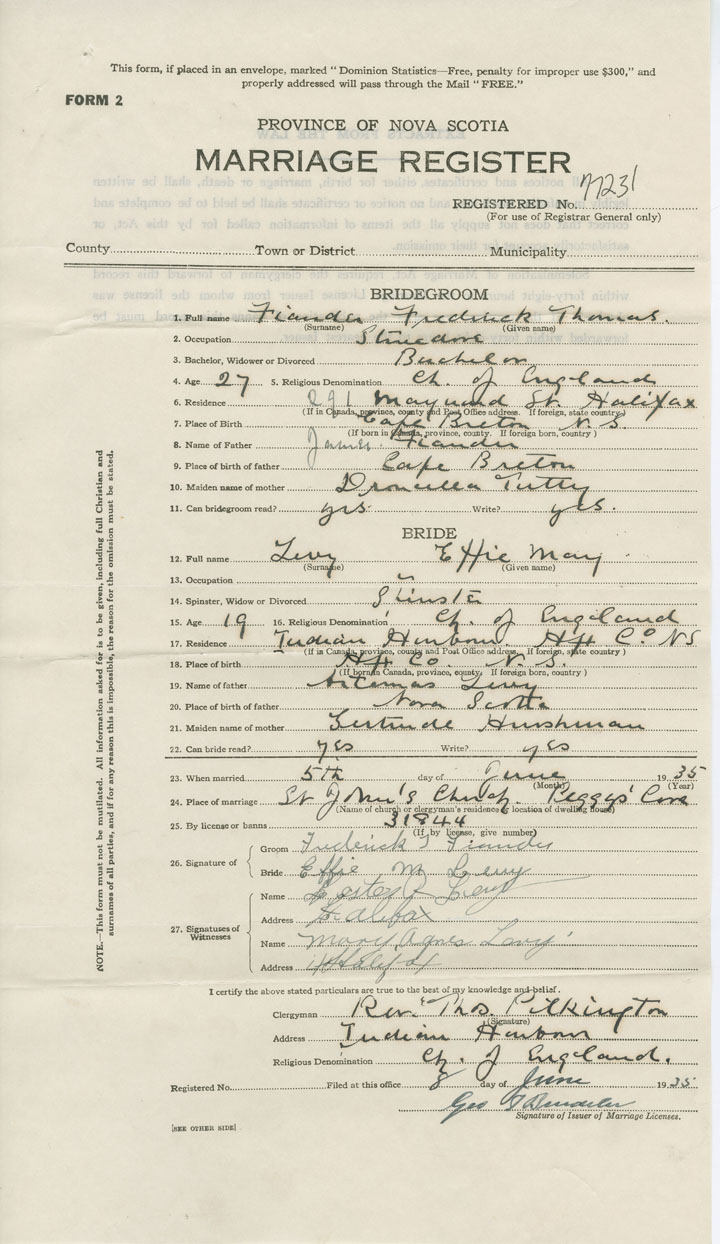 This form, if placed in an envelope, marked "Dominion Statistics—Free, penalty for improper use $300," and
properly addressed will pass through the Mail "FREE."
FORM 2
PROVINCE OF NOVA SCOTIA
MARRIAGE REGISTER
REGISTERED No. 77231
(For use of Registrar General only)
County Town or District Municipality
BRIDEGROOM
1. Full name Fiander Frederick Thomas.
(Surname) (Given name)
2. Occupation Stevedore
3. Bachelor, Widower or Divorced Bachelor
4. Age 27 5. Religious Denomination Ch. of England
6. Residence 291 Maynard St. Halifax
(If in Canada, province, county and Post Office address. If foreign, state country)
7. Place of Birth Cape Breton N. S.
(If born in Canada, province, county. If foreign born, country)
8. Name of Father James Fiander
9. Place of birth of father Cape Breton
10. Maiden name of mother Tutty
11. Can bridegroom read? yes. Write? yes.
BRIDE
12. Full name Levy Effie May
(Surname) (Given name)
13. Occupation "
14. Spinster, Widow or Divorced Spinster
15. Age 19 16. Religious Denomination Ch. of England
17. Residence Indian Harbour Hfx Co NS
(If in Canada, province, county and Post Office address. If foreign, state country)
18. Place of birth Hfx Co. N. S.
(If born in Canada, province, county. If foreign born, country)
19. Name of father Artemas Levy
20. Place of birth of father Nova Scotia
21. Maiden name of mother Gertrude Hurshman
22. Can bride read? yes Write? yes
23. When married 5th day of June 1935
(Month) (Year)
24. Place of marriage St John's Church. Peggy's Cove
(Name of church or clergyman's residence; location of dwelling house)
25. By license or banns 31844
(If by license, give number)
26. Signature of
Groom Frederick T Fiander
Bride Effie M Levy
27. Signatures of Witnesses
Name Levy
Address Halifax
Name Mary Agnes Levy
Address Halifax
I certify the above stated particulars are true to the best of my knowledge and belief.
Clergyman Rev. Thos. Pilkington
(Signature)
Address Indian Harbour
Religious Denomination Ch. of England.
Registered No. Filed at this office 8 day of June 1935
Geo
Signature of Issuer of Marriage Licenses.
[SEE OTHER SIDE]
NOTE.—This form must not be mutilated. All information asked for is to be given, including full Christian and
surnames of all parties, and if for any reason this is impossible, the reason for the omission must be stated.